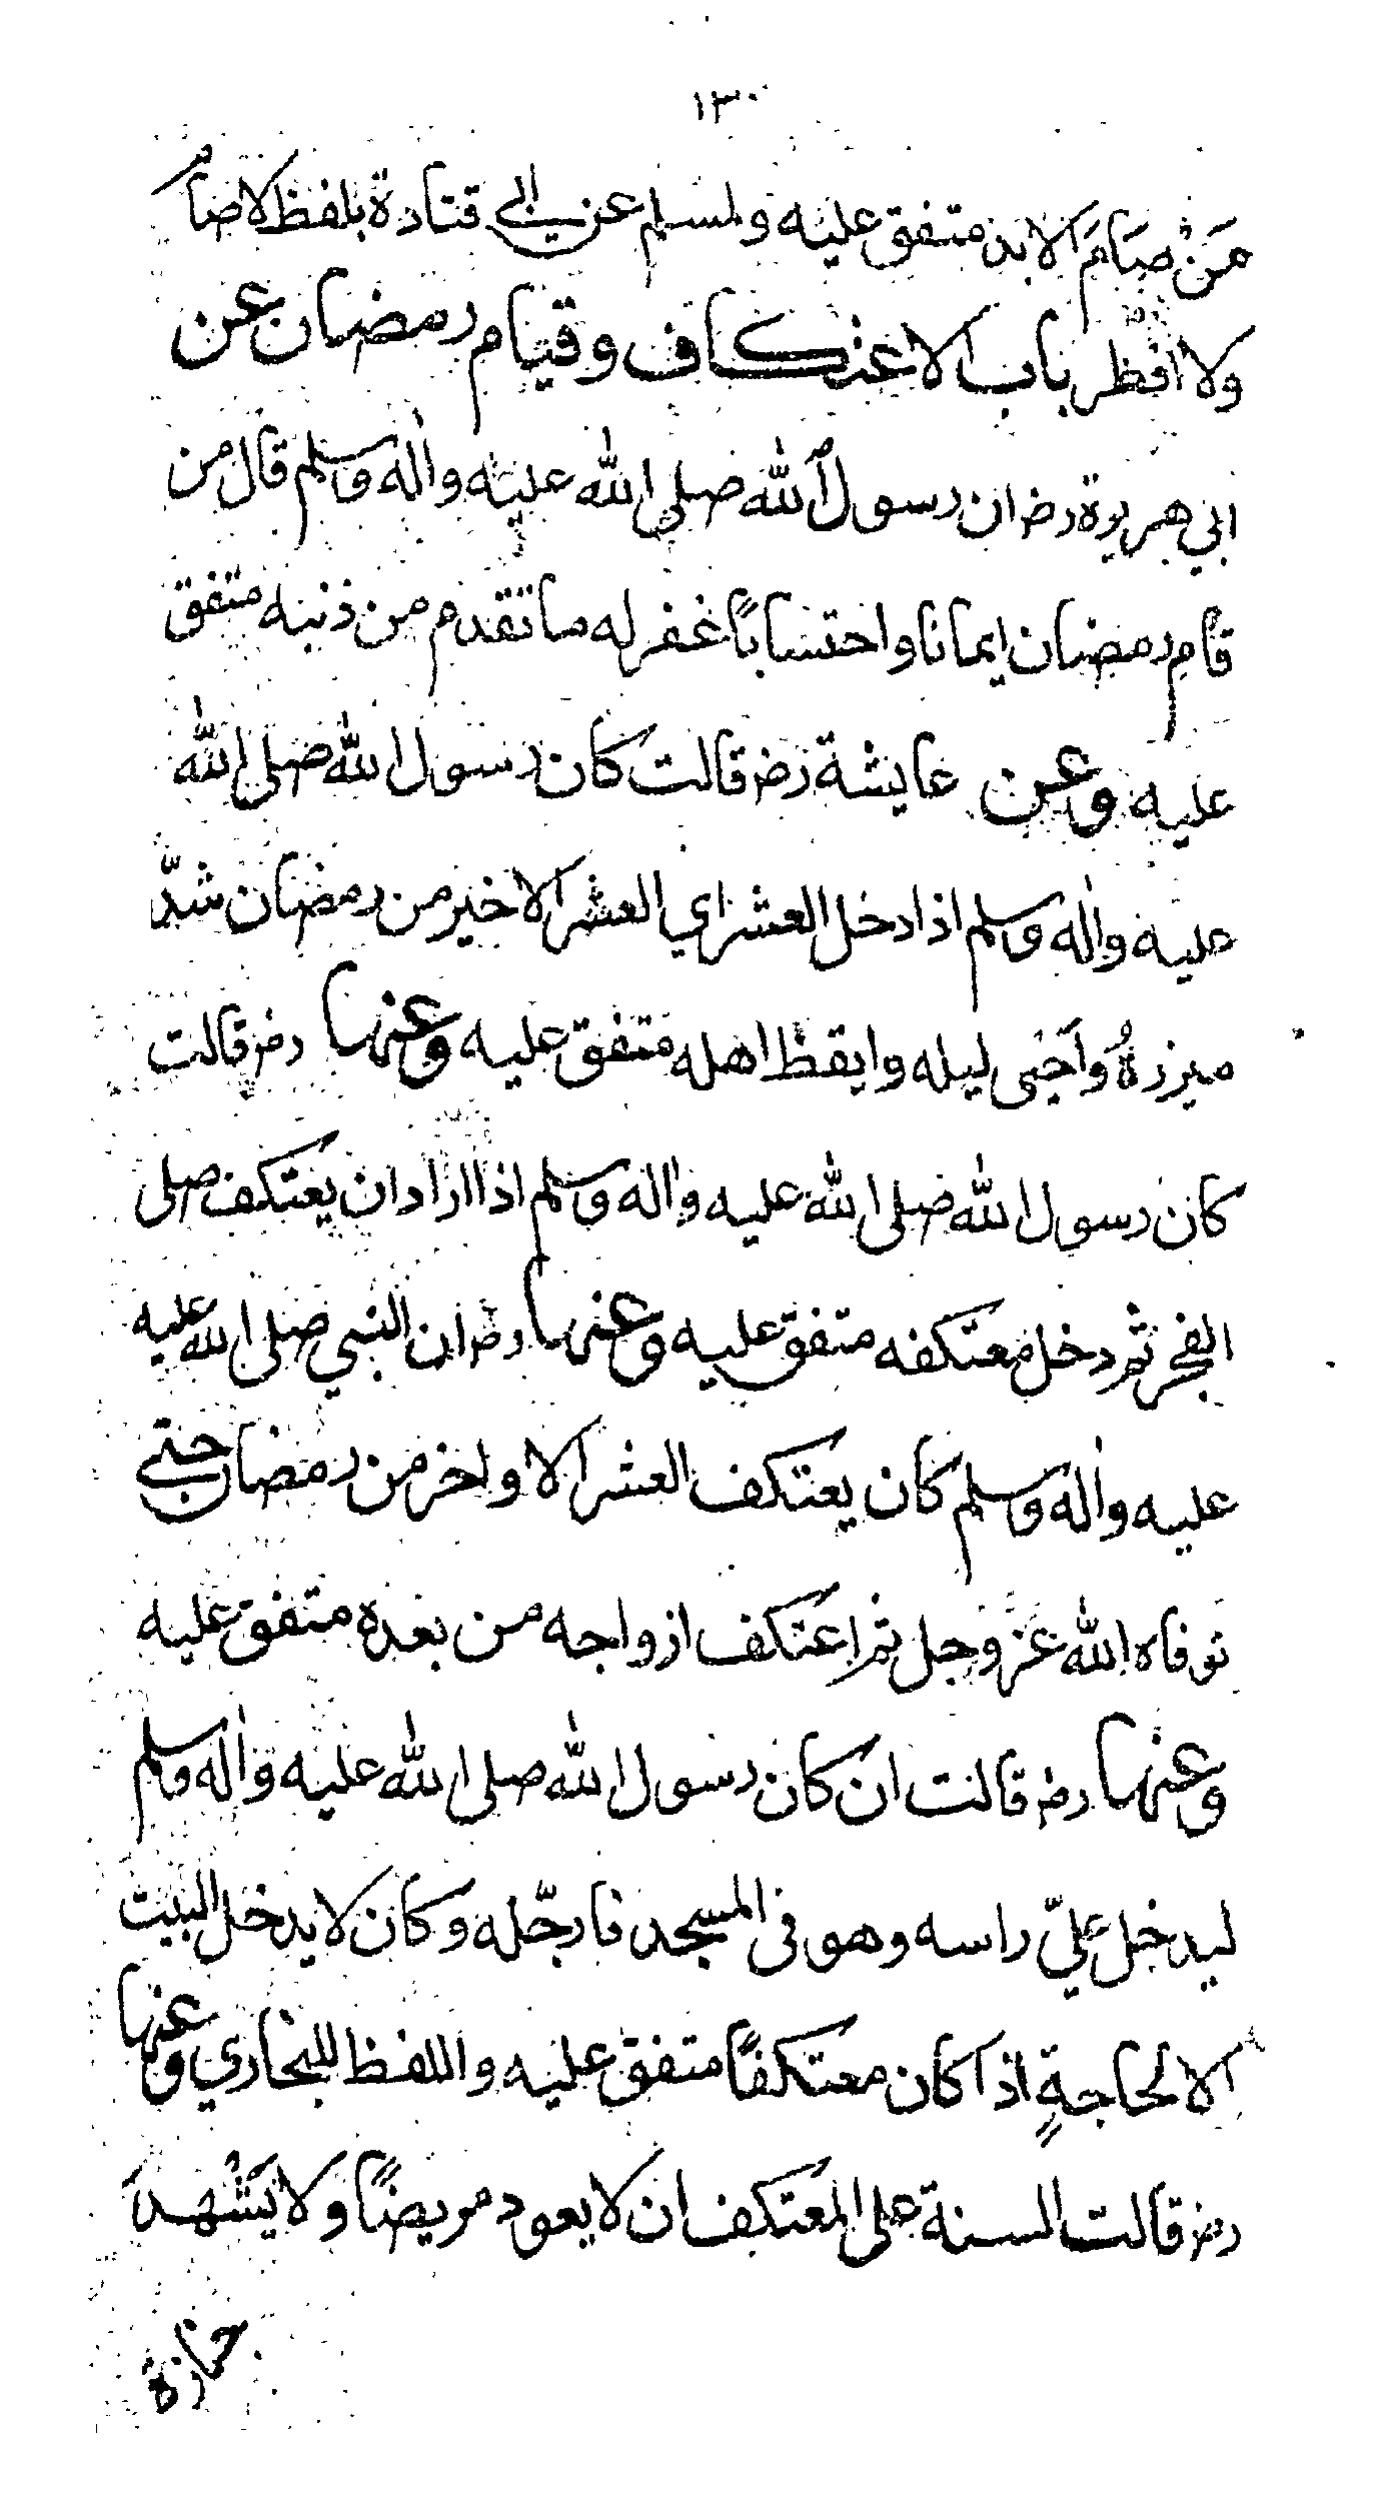 ١٣٠
مَنْ صَامَ الابد متفق عليه ولمسلم عن ابي قتادة بلفظ لا صام
ولا افطر باب الاعتكاف وقيام رمضان عن
ابي هريرة رض ان رسول الله صلى الله عليه واله وسلم قال من
قام رمضان ايمانا واحتسابًا غفر له ما تقدم من ذنبه متفق
عليه وعن عايشة رض قالت كان رسول الله صلى الله
عليه واله وسلم اذا دخل العشر اي العشر الاخير من رمضان شدّ
ميزرهُ وأحيى ليله وايقظ اهله متفق عليه وعنها رض قالت
كان رسول الله صلى الله عليه واله وسلم اذا اراد ان يعتكف صلى
الفجر ثم دخل معتكفه متفق عليه وعنها رض ان النبي صلى الله عليه
عليه واله وسلم كان يعتكف العشر الاواخر من رمضان حتى
توفاه الله عَزَّ وجل ثم اعتكف ازواجه من بعده متفق عليه
وعنها رض قالت ان كان رسول الله صلى الله عليه واله وسلم
ليدخل عليّ راسه وهو فى المسجد فارجّله وكان لا يدخل البيت
الا لحاجةٍ اذا كان معتكفًا متفق عليه واللفظ للبخاري وعنها
رض قالت السنة على المعتكف ان لا يعود مريضًا ولا يَشْهدَ
جنازة